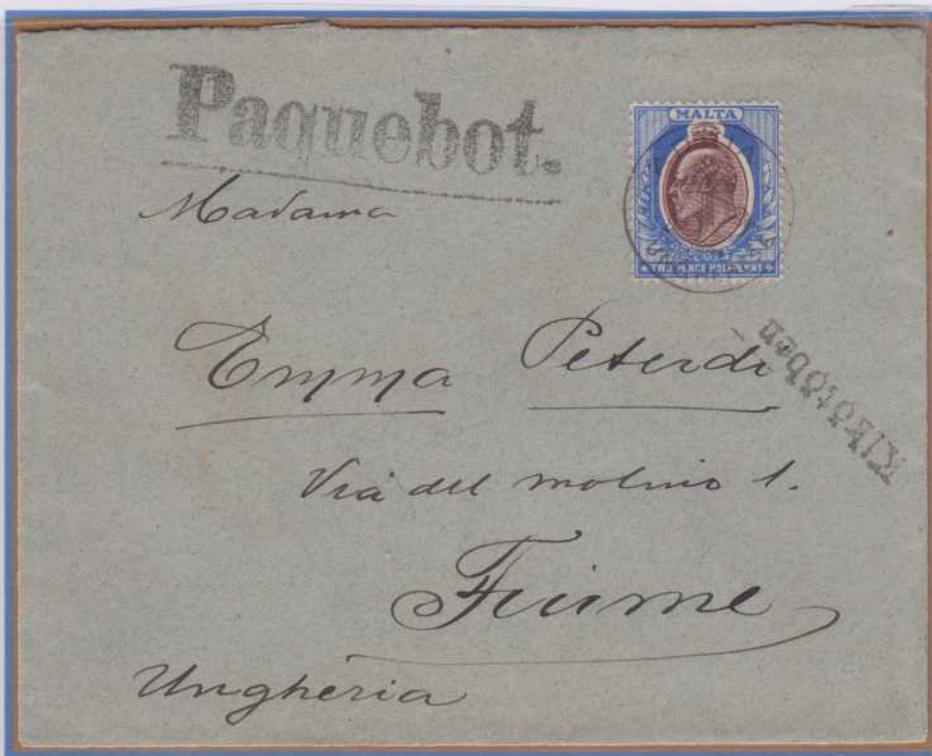 Paquebot.
MALTA
TWO PENCE HALFPENNY
Madama
Emma Peterdi
Kikötőben
Via del molino 1.
Fiume
Ungheria